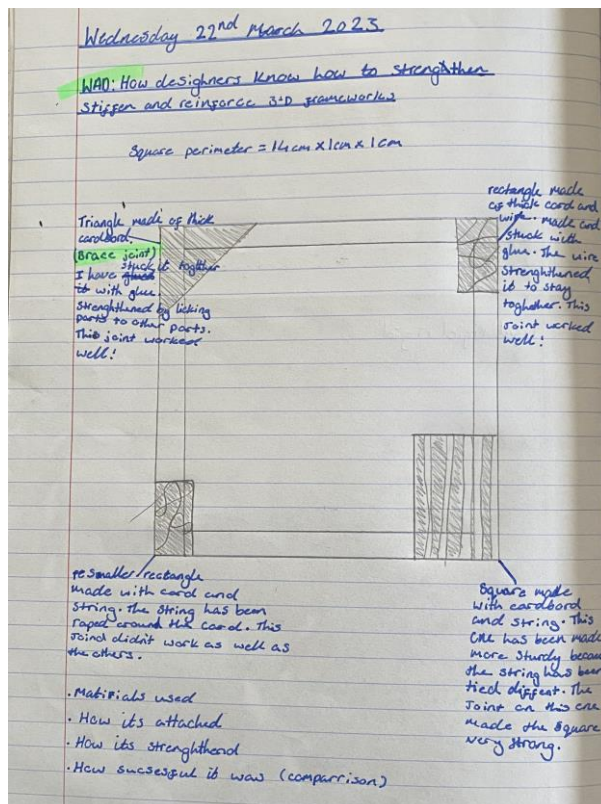 Wednesday 22nd March 2023
WAO: How designers know how to strengthen
stiffen and reinforce 3-D frameworks
Square perimeter = 14cm x 1cm x 1cm
Triangle made of thick
cardbord.
(Brace joint)
I have stuck it togther
it with glue.
Strenghthened by licking
parts to other parts.
This joint worked
well!
rectangle made
of thick card and
wire. made and
stuck with
glue. The wire
strenghthened
it to stay
toghether. This
Joint worked
well!
smaller rectangle
made with card and
string. The string has been
raped around the card. This
Joind didn't work as well as
the others.
Square made
with cardbord
and string. This
one has been made
more sturdy becau
the string has been
tied diffent. The
Joint on this one
made the square
very strong.
· Matirials used
· How its attached
· How its strenghthend
· How sucsessful it was (comparrison)